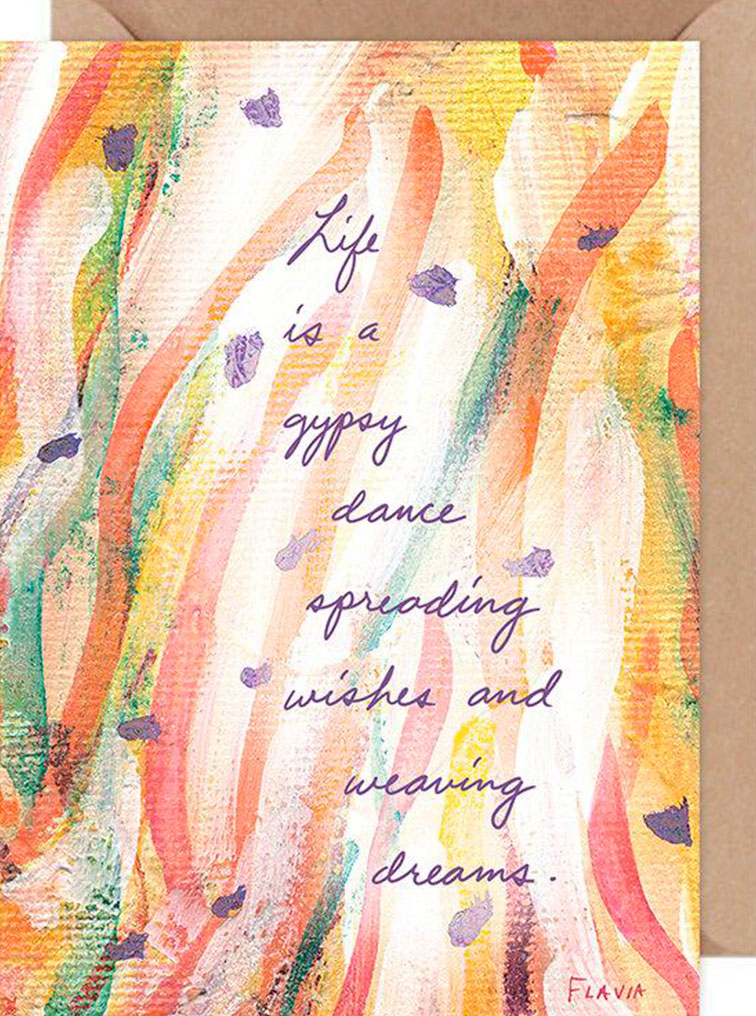 Life
is a
gypsy
dance
spreading
wishes and
weaving
dreams.
FLAVIA